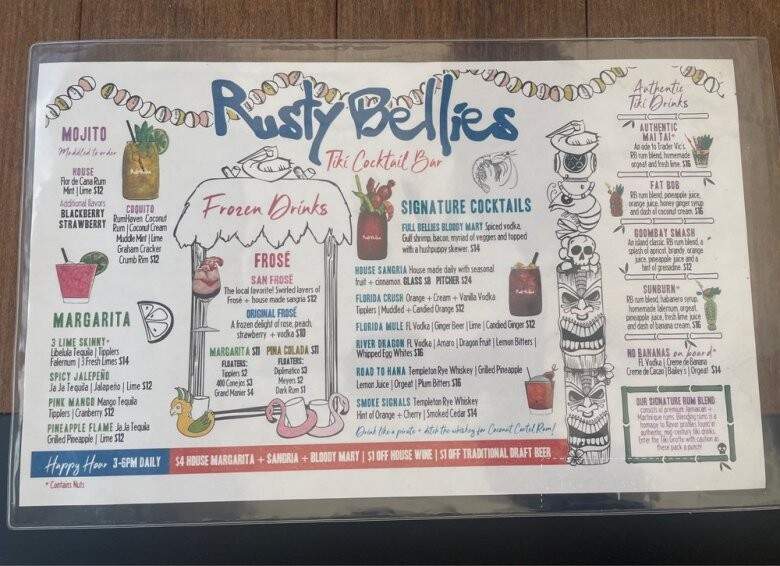 Rusty Bellies
Tiki Cocktail Bar
MOJITO
Muddled to order
HOUSE
Flor de Cana Rum
Mint | Lime $12
Additional flavors
BLACKBERRY
STRAWBERRY
COQUITO
RumHaven Coconut
Rum | Coconut Cream
Muddle Mint | Lime
Graham Cracker
Crumb Rim $12
MARGARITA
3 LIME SKINNY*
Libelula Tequila | Tipplers
Falernum | 3 Fresh Limes $14
SPICY JALEPEÑO
Ja Ja Tequila | Jalapeño | Lime $12
PINK MANGO Mango Tequila
Tipplers | Cranberry $12
PINEAPPLE FLAME Ja Ja Tequila
Grilled Pineapple | Lime $12
Frozen Drinks
FROSÉ
SAN FROSÉ
The local favorite! Swirled layers of
Frosé + house made sangria $12
ORIGINAL FROSÉ
A frozen delight of rose, peach,
strawberry + vodka $10
MARGARITA $11
FLOATERS:
Tipplers $2
400 Conejos $3
Grand Manier $4
PINA COLADA $11
FLOATERS:
Diplomatico $3
Meyers $2
Dark Rum $1
SIGNATURE COCKTAILS
FULL BELLIES BLOODY MARY Spiced vodka,
Gulf shrimp, bacon, myriad of veggies and topped
with a hushpuppy skewer. $14
HOUSE SANGRIA House made daily with seasonal
fruit + cinnamon. GLASS $8 PITCHER $24
FLORIDA CRUSH Orange + Cream + Vanilla Vodka
Tipplers | Muddled + Candied Orange $12
FLORIDA MULE FL Vodka | Ginger Beer | Lime | Candied Ginger $12
RIVER DRAGON FL Vodka | Amaro | Dragon Fruit | Lemon Bitters |
Whipped Egg Whites $16
ROAD TO HANA Templeton Rye Whiskey | Grilled Pineapple
Lemon Juice | Orgeat | Plum Bitters $16
SMOKE SIGNALS Templeton Rye Whiskey
Hint of Orange + Cherry | Smoked Cedar $14
Drink like a pirate + ditch the whiskey for Coconut Cartel Rum!
Authentic
Tiki Drinks
AUTHENTIC
MAI TAI*
An ode to Trader Vic's.
RB rum blend, homemade
orgeat and fresh lime. $16
FAT BOB
RB rum blend, pineapple juice,
orange juice, honey ginger syrup
and dash of coconut cream. $16
GOOMBAY SMASH
An island classic. RB rum blend, a
splash of apricot, brandy, orange
juice, pineapple juice and a
hint of grenadine. $12
SUNBURN*
RB rum blend, habanero syrup,
homemade falernum, orgeat,
pineapple juice, fresh lime juice
and dash of banana cream. $16
NO BANANAS on board*
FL Vodka | Creme de Banana
Creme de Cacao | Bailey's | Orgeat $14
OUR SIGNATURE RUM BLEND
consists of premium Jamaican +
Martinique rums. Blending rums is a
homage to flavor profiles found in
authentic, mid-century tiki drinks.
Enter the Tiki Grotto with caution as
these pack a punch!
Happy Hour 3-6PM DAILY $4 HOUSE MARGARITA + SANGRIA + BLOODY MARY | $1 OFF HOUSE WINE | $1 OFF TRADITIONAL DRAFT BEER
* Contains Nuts